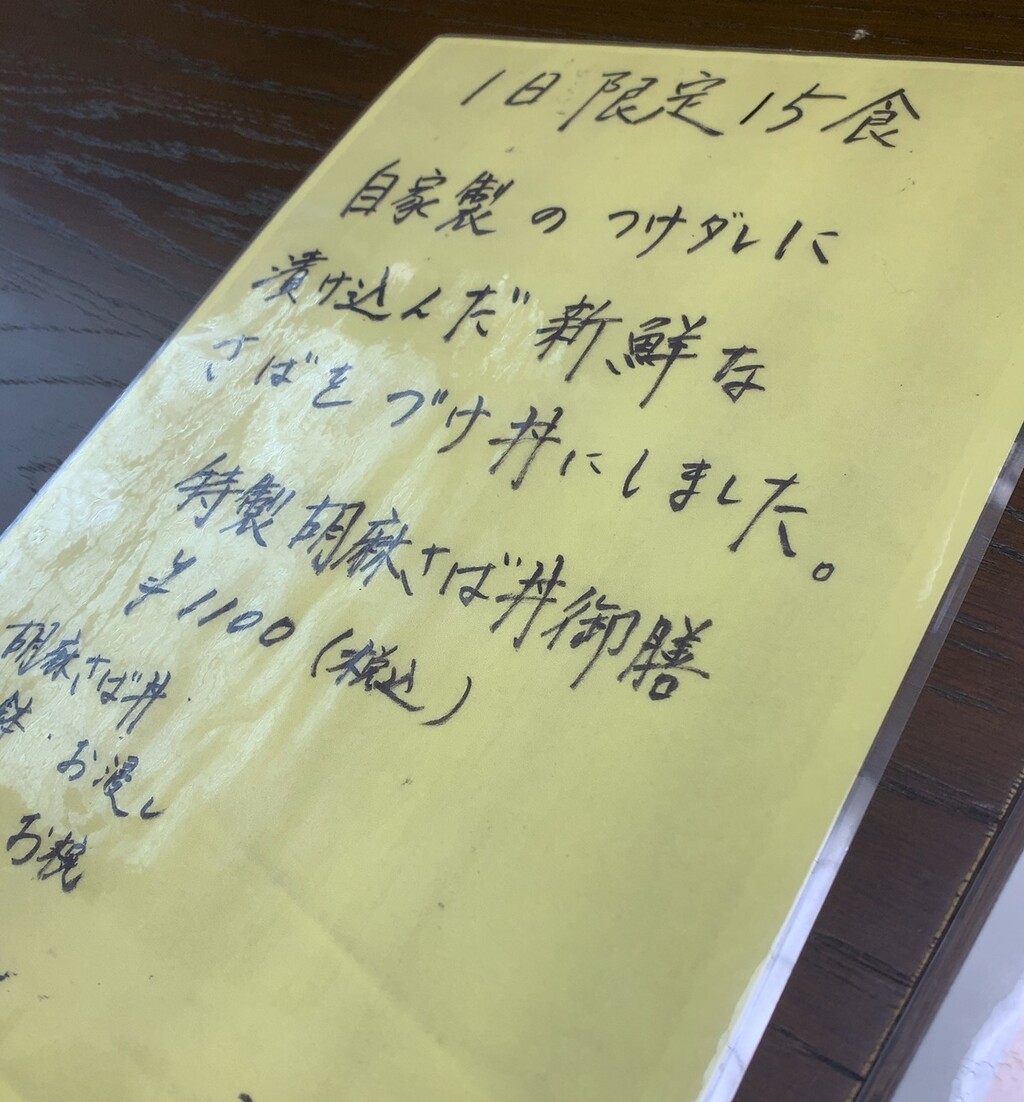 1日限定15食
自家製のつけダレに
漬け込んだ新鮮な
さばをづけ丼にしました。
特製胡麻さば丼御膳
¥1100(税込)
胡麻さば丼
鉢・お浸し
お椀